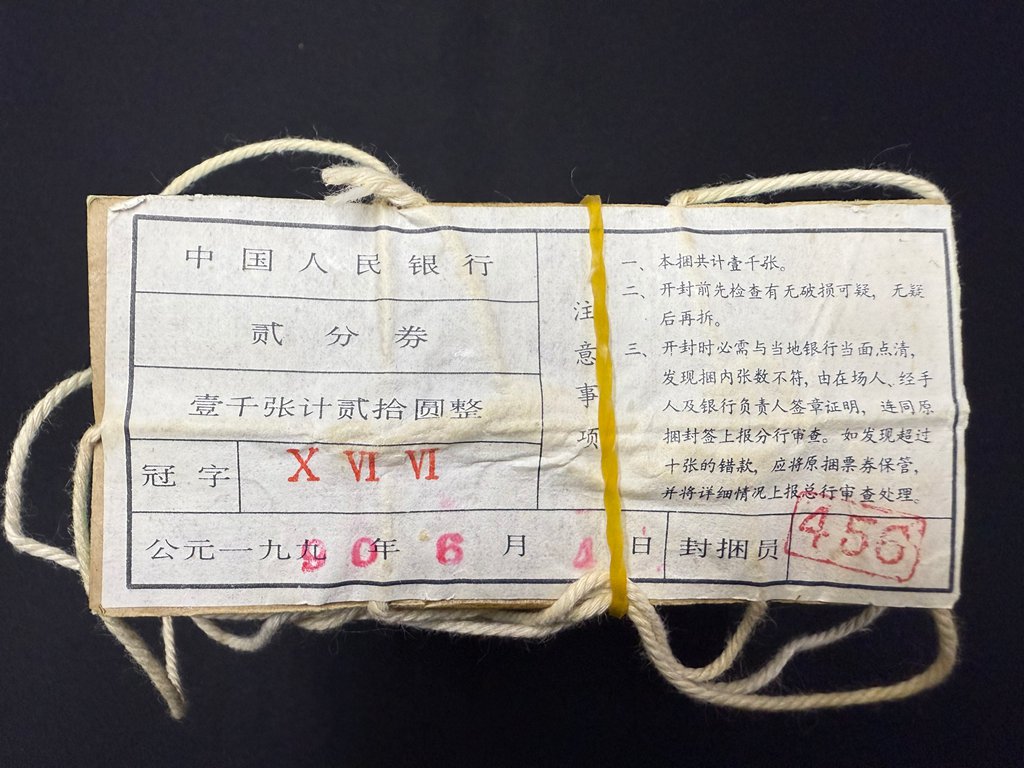 中国人民银行
贰分券
壹千张计贰拾圆整
冠字 X VI VI
公元一九九90年 6月 4日 封捆员 456
注意事项
一、本捆共计壹千张。
二、开封前先检查有无破损可疑，无疑
后再拆。
三、开封时必需与当地银行当面点清，
发现捆内张数不符，由在场人、经手
人及银行负责人签章证明，连同原
捆封签上报分行审查。如发现超过
十张的错款，应将原捆票券保管，
并将详细情况上报总行审查处理。